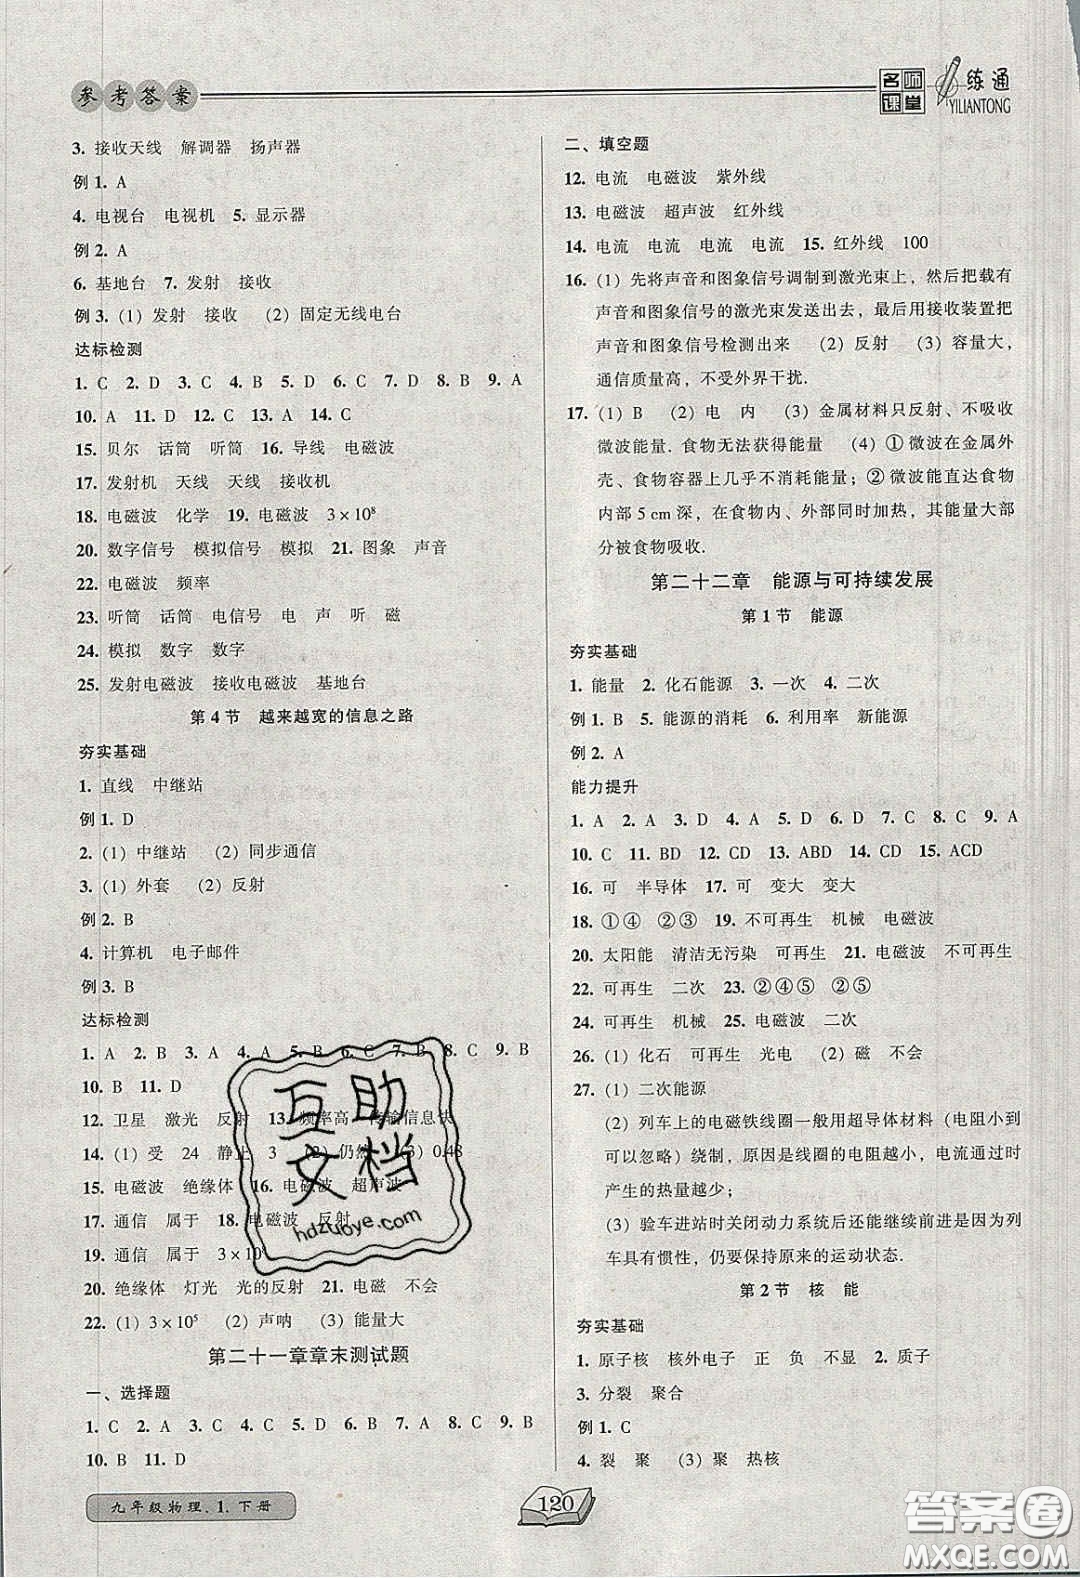 参考答案
名师课堂
一练通
YILIANTONG
3. 接收天线 解调器 扬声器
例 1. A
4. 电视台 电视机 5. 显示器
例 2. A
6. 基地台 7. 发射 接收
例 3. (1) 发射 接收 (2) 固定无线电台
达标检测
1. C 2. D 3. C 4. B 5. D 6. C 7. D 8. B 9. A
10. A 11. D 12. C 13. A 14. C
15. 贝尔 话筒 听筒 16. 导线 电磁波
17. 发射机 天线 天线 接收机
18. 电磁波 化学 19. 电磁波 3×10⁸
20. 数字信号 模拟信号 模拟 21. 图象 声音
22. 电磁波 频率
23. 听筒 话筒 电信号 电 声 听 磁
24. 模拟 数字 数字
25. 发射电磁波 接收电磁波 基地台
第 4 节 越来越宽的信息之路
夯实基础
1. 直线 中继站
例 1. D
2. (1) 中继站 (2) 同步通信
3. (1) 外套 (2) 反射
例 2. B
4. 计算机 电子邮件
例 3. B
达标检测
1. A 2. B 3. A 4. A 5. B 6. C 7. B 8. C 9. B
10. B 11. D
12. 卫星 激光 反射 13. 频率高 传输信息快
14. (1) 受 24 静止 3 (2) 仍然 (3) 0.48
15. 电磁波 绝缘体 16. 电磁波 超声波
17. 通信 属于 18. 电磁波 反射
19. 通信 属于 3×10⁸
20. 绝缘体 灯光 光的反射 21. 电磁 不会
22. (1) 3×10⁵ (2) 声呐 (3) 能量大
第二十一章章末测试题
一、选择题
1. C 2. A 3. C 4. C 5. D 6. C 7. B 8. C 9. B
10. B 11. D
二、填空题
12. 电流 电磁波 紫外线
13. 电磁波 超声波 红外线
14. 电流 电流 电流 电流 15. 红外线 100
16. (1) 先将声音和图象信号调制到激光束上，然后把载有
声音和图象信号的激光束发送出去，最后用接收装置把
声音和图象信号检测出来 (2) 反射 (3) 容量大，
通信质量高，不受外界干扰.
17. (1) B (2) 电 内 (3) 金属材料只反射、不吸收
微波能量. 食物无法获得能量 (4) ① 微波在金属外
壳、食物容器上几乎不消耗能量；② 微波能直达食物
内部 5 cm 深，在食物内、外部同时加热，其能量大部
分被食物吸收.
第二十二章 能源与可持续发展
第 1 节 能源
夯实基础
1. 能量 2. 化石能源 3. 一次 4. 二次
例 1. B 5. 能源的消耗 6. 利用率 新能源
例 2. A
能力提升
1. A 2. A 3. D 4. A 5. D 6. D 7. C 8. C 9. A
10. C 11. BD 12. CD 13. ABD 14. CD 15. ACD
16. 可 半导体 17. 可 变大 变大
18. ①④ ②③ 19. 不可再生 机械 电磁波
20. 太阳能 清洁无污染 可再生 21. 电磁波 不可再生
22. 可再生 二次 23. ②④⑤ ②⑤
24. 可再生 机械 25. 电磁波 二次
26. (1) 化石 可再生 光电 (2) 磁 不会
27. (1) 二次能源
(2) 列车上的电磁铁线圈一般用超导体材料（电阻小到
可以忽略）绕制，原因是线圈的电阻越小，电流通过时
产生的热量越少；
(3) 验车进站时关闭动力系统后还能继续前进是因为列
车具有惯性，仍要保持原来的运动状态.
第 2 节 核 能
夯实基础
1. 原子核 核外电子 正 负 不显 2. 质子
3. 分裂 聚合
例 1. C
4. 裂 聚 (3) 聚 热核
互助文档
hdzuoye.com
九年级物理、1. 下册
120
答案圈
MXQE.COM